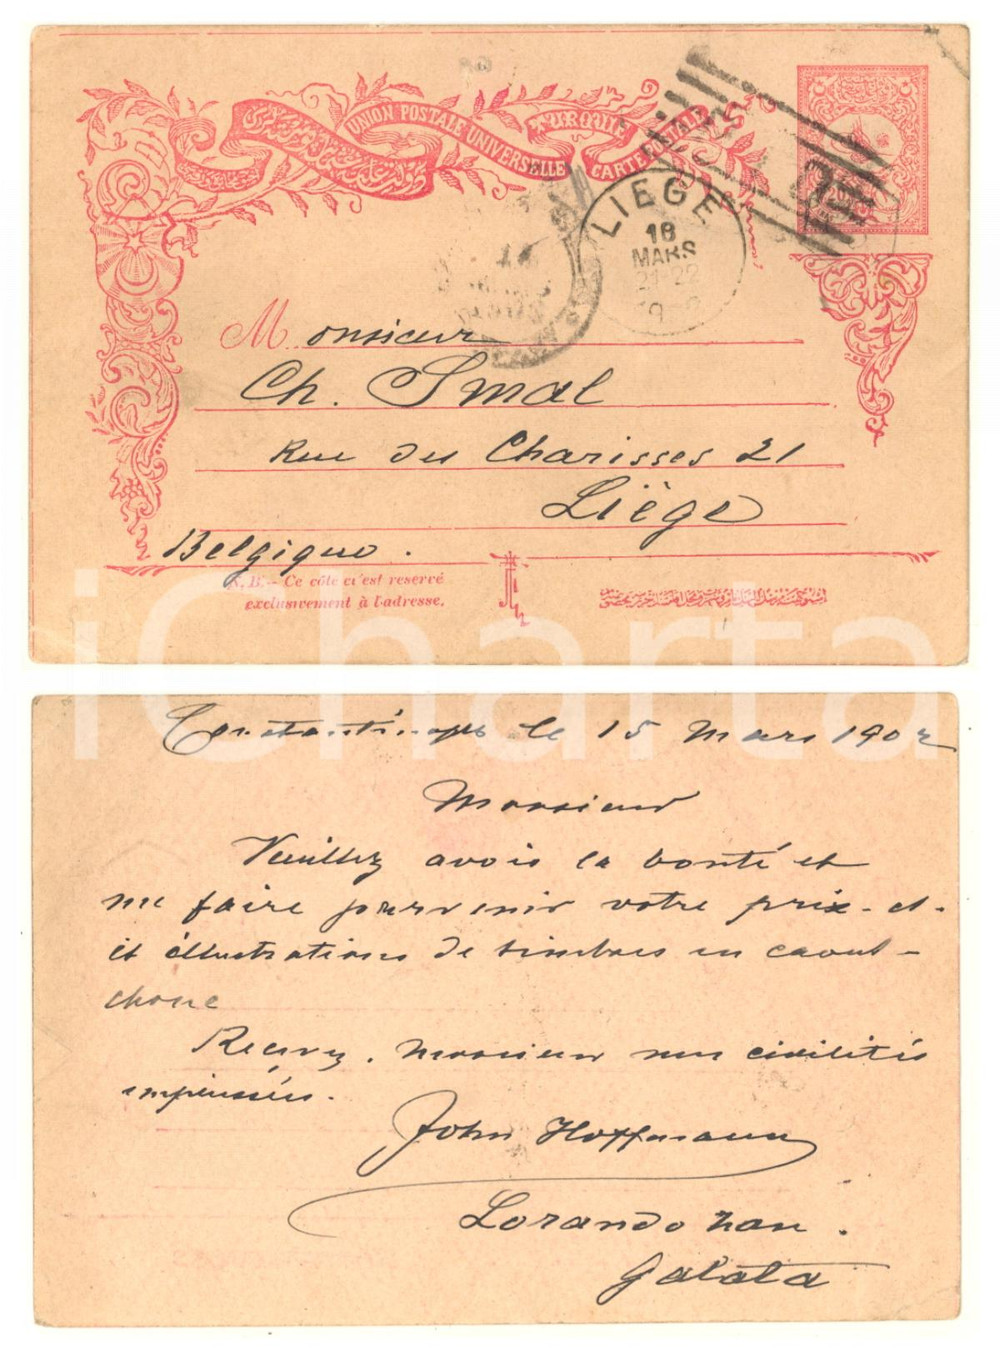 UNION POSTALE UNIVERSELLE
TURQUIE
CARTE POSTALE
LIEGE
18
MARS
21-22
Monsieur
Ch. Smal
Rue des Charisses 21
Liège
Belgique.
N. B. - Ce côte ci'est reservé
exclusivement à l'adresse.
iCharta
Constantinople le 15 Mars 1902
Monsieur
Veuillez avoir la bonté et
me faire parvenir votre prix-ct-
et illustrations de timbres en caout-
chouc
Recevez, Monsieur mes civilités
empressées.
John Hoffmann
Lorando han.
Galata